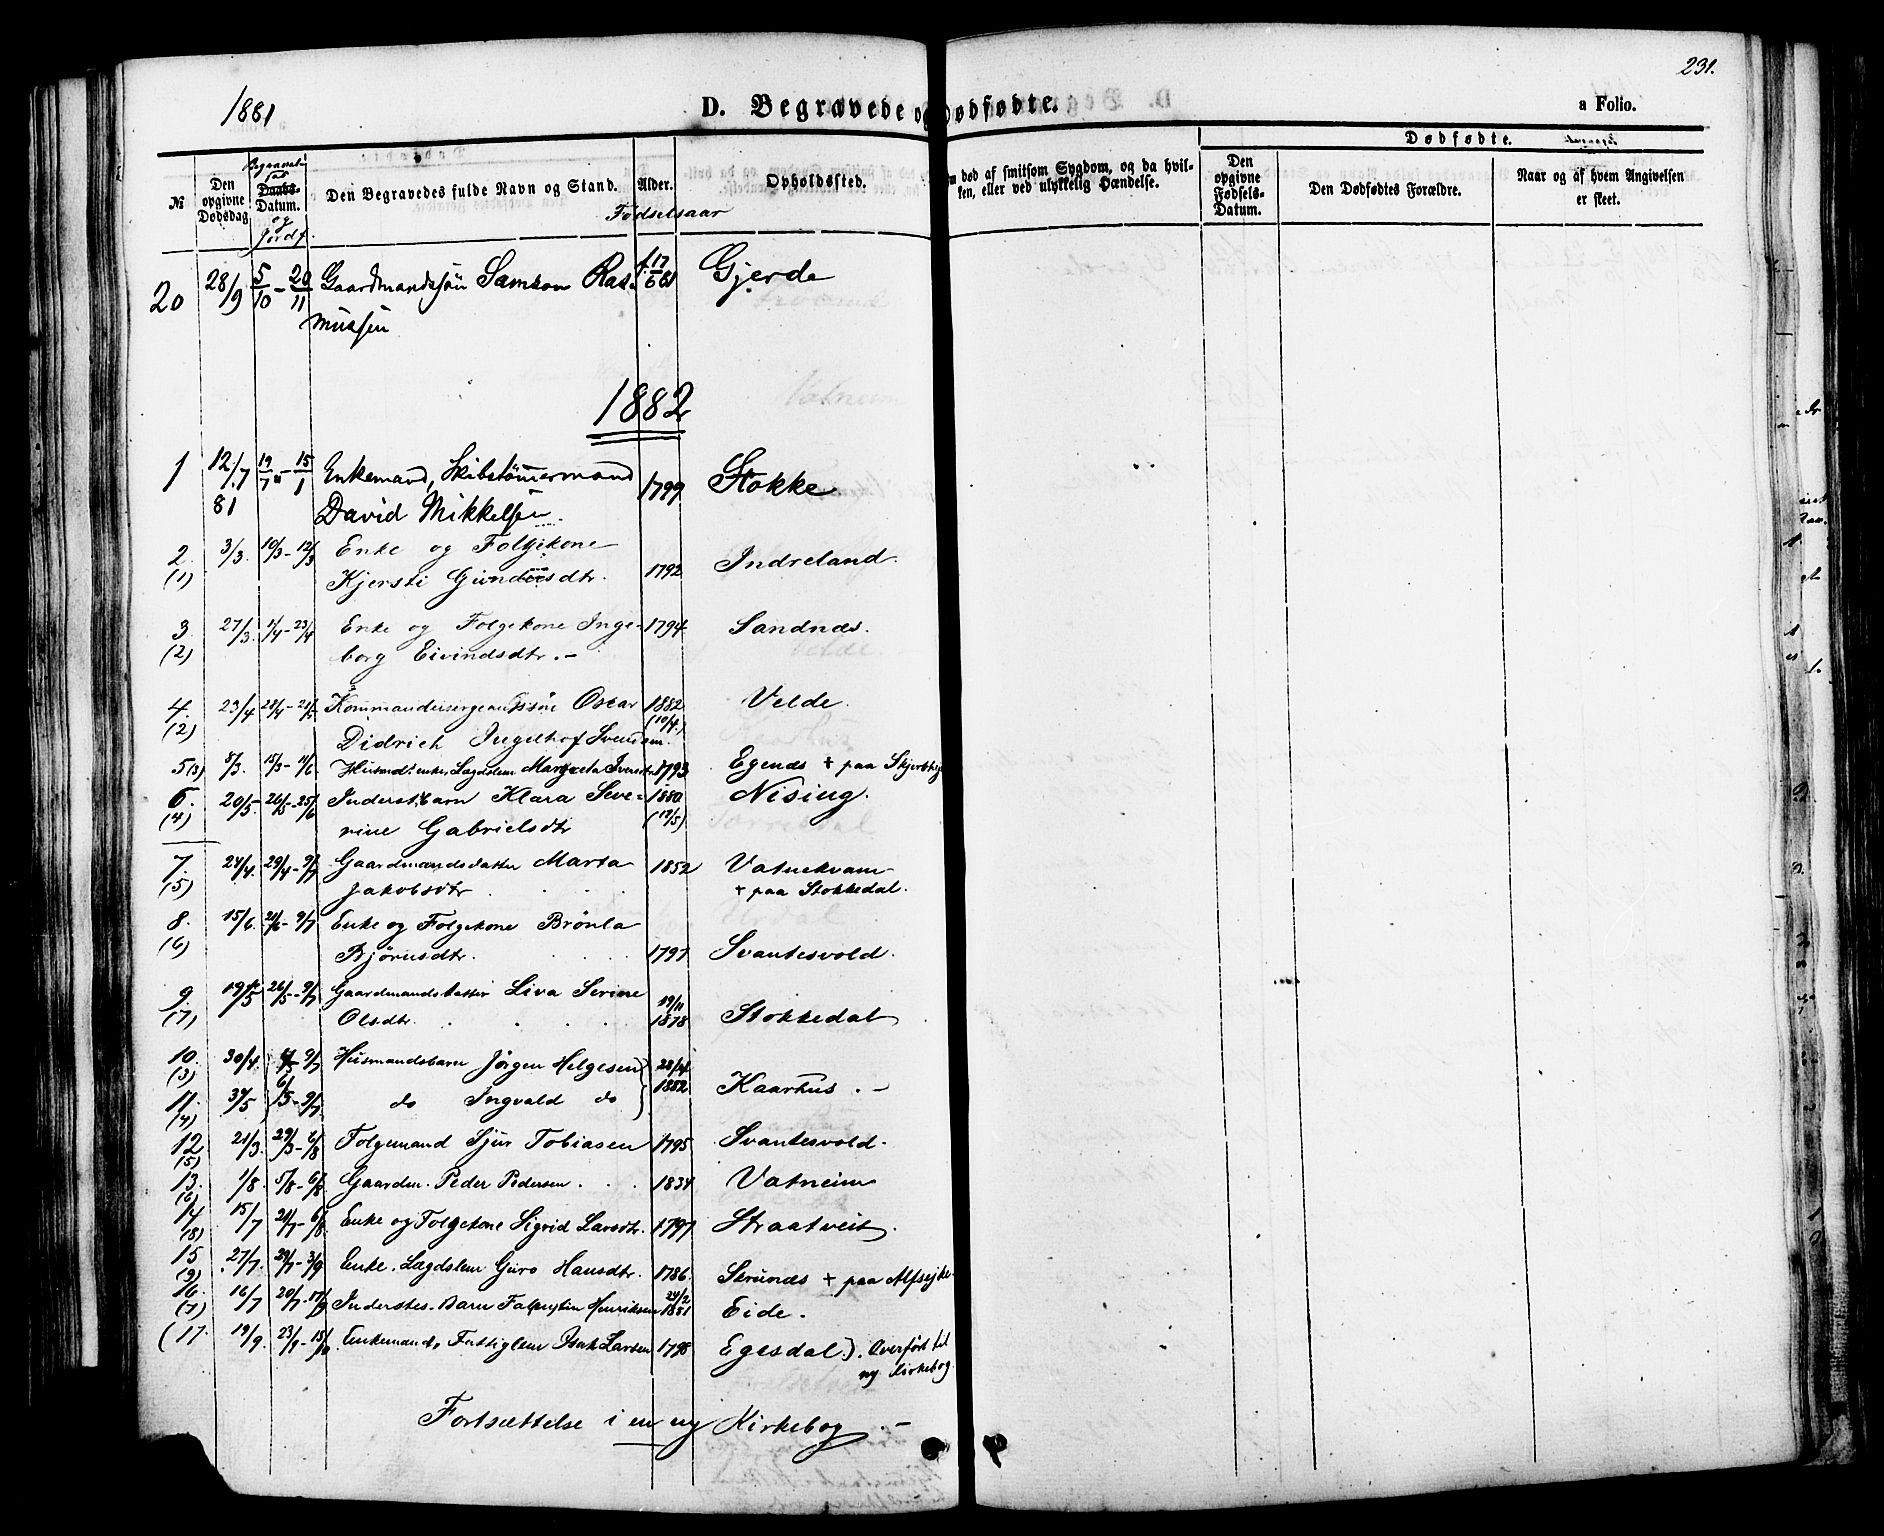 231.
1881
D. Begravede og Dødfødte.
a Folio.
Dødfødte.
№
Den opgivne Dødsdag
Begravel-
Daabs-
Datum.
og
Jordf.
Den Begravedes fulde Navn og Stand.
Alder.
Fødselsaar
Opholdssted.
død af smitsom Sygdom, og da hvil-
ken, eller ved ulykkelig Hændelse.
Den opgivne Fødsels-Datum.
Den Dødfødtes Forældre.
Naar og af hvem Angivelsen
er skeet.
20 28/9 5/10 - 20/11 Gaardmandssøn Samson Ras- Gjerde
mussen
1882
1 12/7 81 19/7 - 15/1 Enkemand, Skibstømmermand
David Mikkelsen 1799 Stokke
2 (1) 3/3 10/3 - 12/3 Enke og Folgekone
Kjersti Gundersdtr. 1792 Indreland.
3 (2) 27/3 1/4 - 23/4 Enke og Folgekone Inge- 1794 Sandnæs.
borg Eivindsdtr. -
4. (2) 23/4 28/4 - 21/5 Kommandersergeantssøn Oscar 1882 (10/4) Velde.
Didrich Ingelhof Svendsen.
5 (3) 15/3 - 11/6 Husmds enke, Lægdslem Margreta Iversdtr 1793 Egenæs + paa
6. (4) 20/5 - 26/5 - 25/6 Inderst. barn Klara Seve- 1880 Nising.
rine Gabrielsdtr
7. (5) 24/4. 29/4 - 9/7 Gaardmandsdatter Marta 1852 Vatnekvam
Jakobsdtr + paa Stokkedal.
8. (6) 15/6. 21/6 - 9/7 Enke og Folgekone Brønla
Bjørnsdtr. 1797 Svantesvold.
9. (7) 19/5 26/5 - 9/7 Gaardmandsdatter Liva Serine 19/11
Olsdtr. 1878 Stokkedal
10. (3) 30/4 9/7 Husmandsbarn Jørgen Helgesen 28/4
1882 Kaarhus. -
11. (4) - 9/7 do Ingvald do
12 (5) 21/3 29/3 - 6/8 Folgemand Sjur Tobiasen 1795 Svantesvold.
13. (6) 1/8. 5/8 - 6/8 Gaardm. Peder Pedersen 1834 Vatneim
14 (8) 15/7 21/7 - 6/8 Enke og Folgekone Sigrid Larsdtr. 1797 Straatveit.
15 (9) 27/7. 29/7 - 3/9 Enke. Lægdslem Guro Hansdtr. 1786. Strunæs + paa Alfsejke.
16. (7) 16/7 20/7 - 17/9 Inderstes. Barn Henriksen 24/2 1881 Eide.
(17. 19/9. 23/9 - 15/10 Enkemand, Fattiglem Isak Larsen 1798 Egesdal.). Overført til
ny Kirkebog.
Fortsættelse i en ny Kirkebog. -